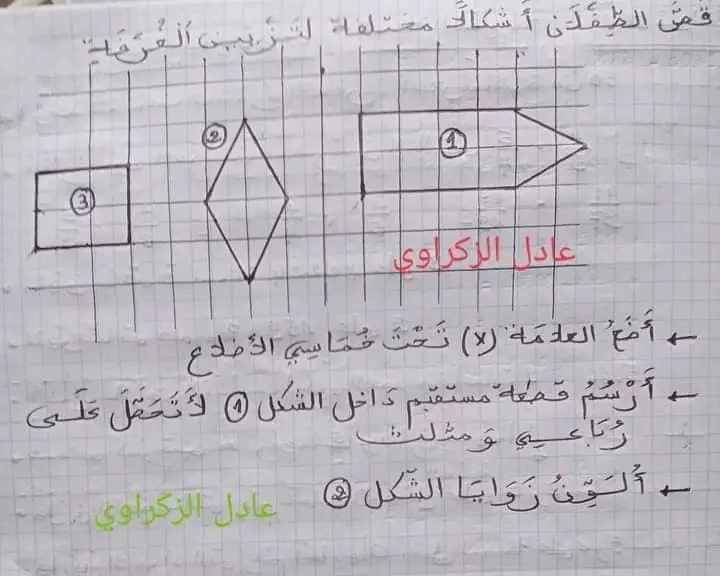 قصّ الطّفلان أشكالا مختلفة لتزيين الغرفة
2
1
3
عادل الزكراوي
← أضع العلامة (x) تَحْتَ خُمَاسِيِّ الأضلاع
← أَرْسُمُ قطعة مستقيم دَاخل الشكل 1 لأَتَحَصَّلَ عَلَى
رُبَاعِيٍ وَ مثلث
← أُلَوِّنُ زَوَايَا الشّكل 2
عادل الزكراوي